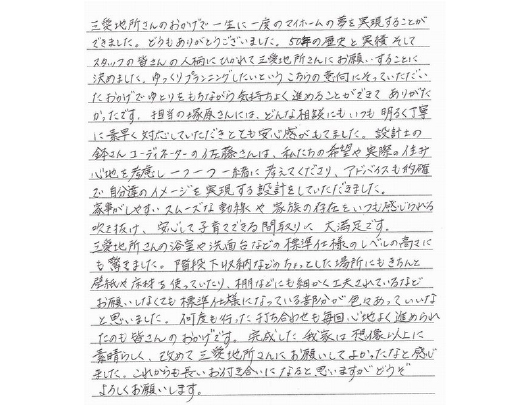 三愛地所さんのおかげで一生に一度のマイホームの夢を実現することが
できました。どうもありがとうございました。50年の歴史と実績そして
スタッフの皆さんの人柄にひかれて三愛地所さんにお願いすることに
決めました。ゆっくりプランニングしたいというこちらの意向にそっていただい
たおかげでゆとりをもちながら気持ちよく進めることができて ありがた
かったです。担当の塚原さんには、どんな相談にも、いつも 明るく丁寧
に素早く対応していただきとても安心感がもてました。設計士の
さん コーディネーターの佐藤さんは、私たちの希望や実際の住み
心地を考慮し一つ一つ一緒に考えてくださり、アドバイスも的確
で自分達のイメージを実現する設計をしていただきました。
家事がしやすいスムーズな動線や家族の存在をいつも感じられる
吹き抜け、安心して子育てできる間取りに大満足です。
三愛地所さんの浴室や洗面台などの標準仕様のレベルの高さに
も驚きました。階段下収納などのちょっとした場所にもきちんと
壁紙や床材を使っていたり、棚などにも細かく工夫されているなど
お願いしなくても標準仕様になっている部分が色々あっていいな
と思いました。何度も行った打ち合わせも毎回心地よく進められ
たのも皆さんのおかげです。完成した我家は想像以上に
素晴らしく、改めて三愛地所さんにお願いしてよかったなと感じ
ました。これからも長いお付き合いになると思いますがどうぞ
よろしくお願いします。